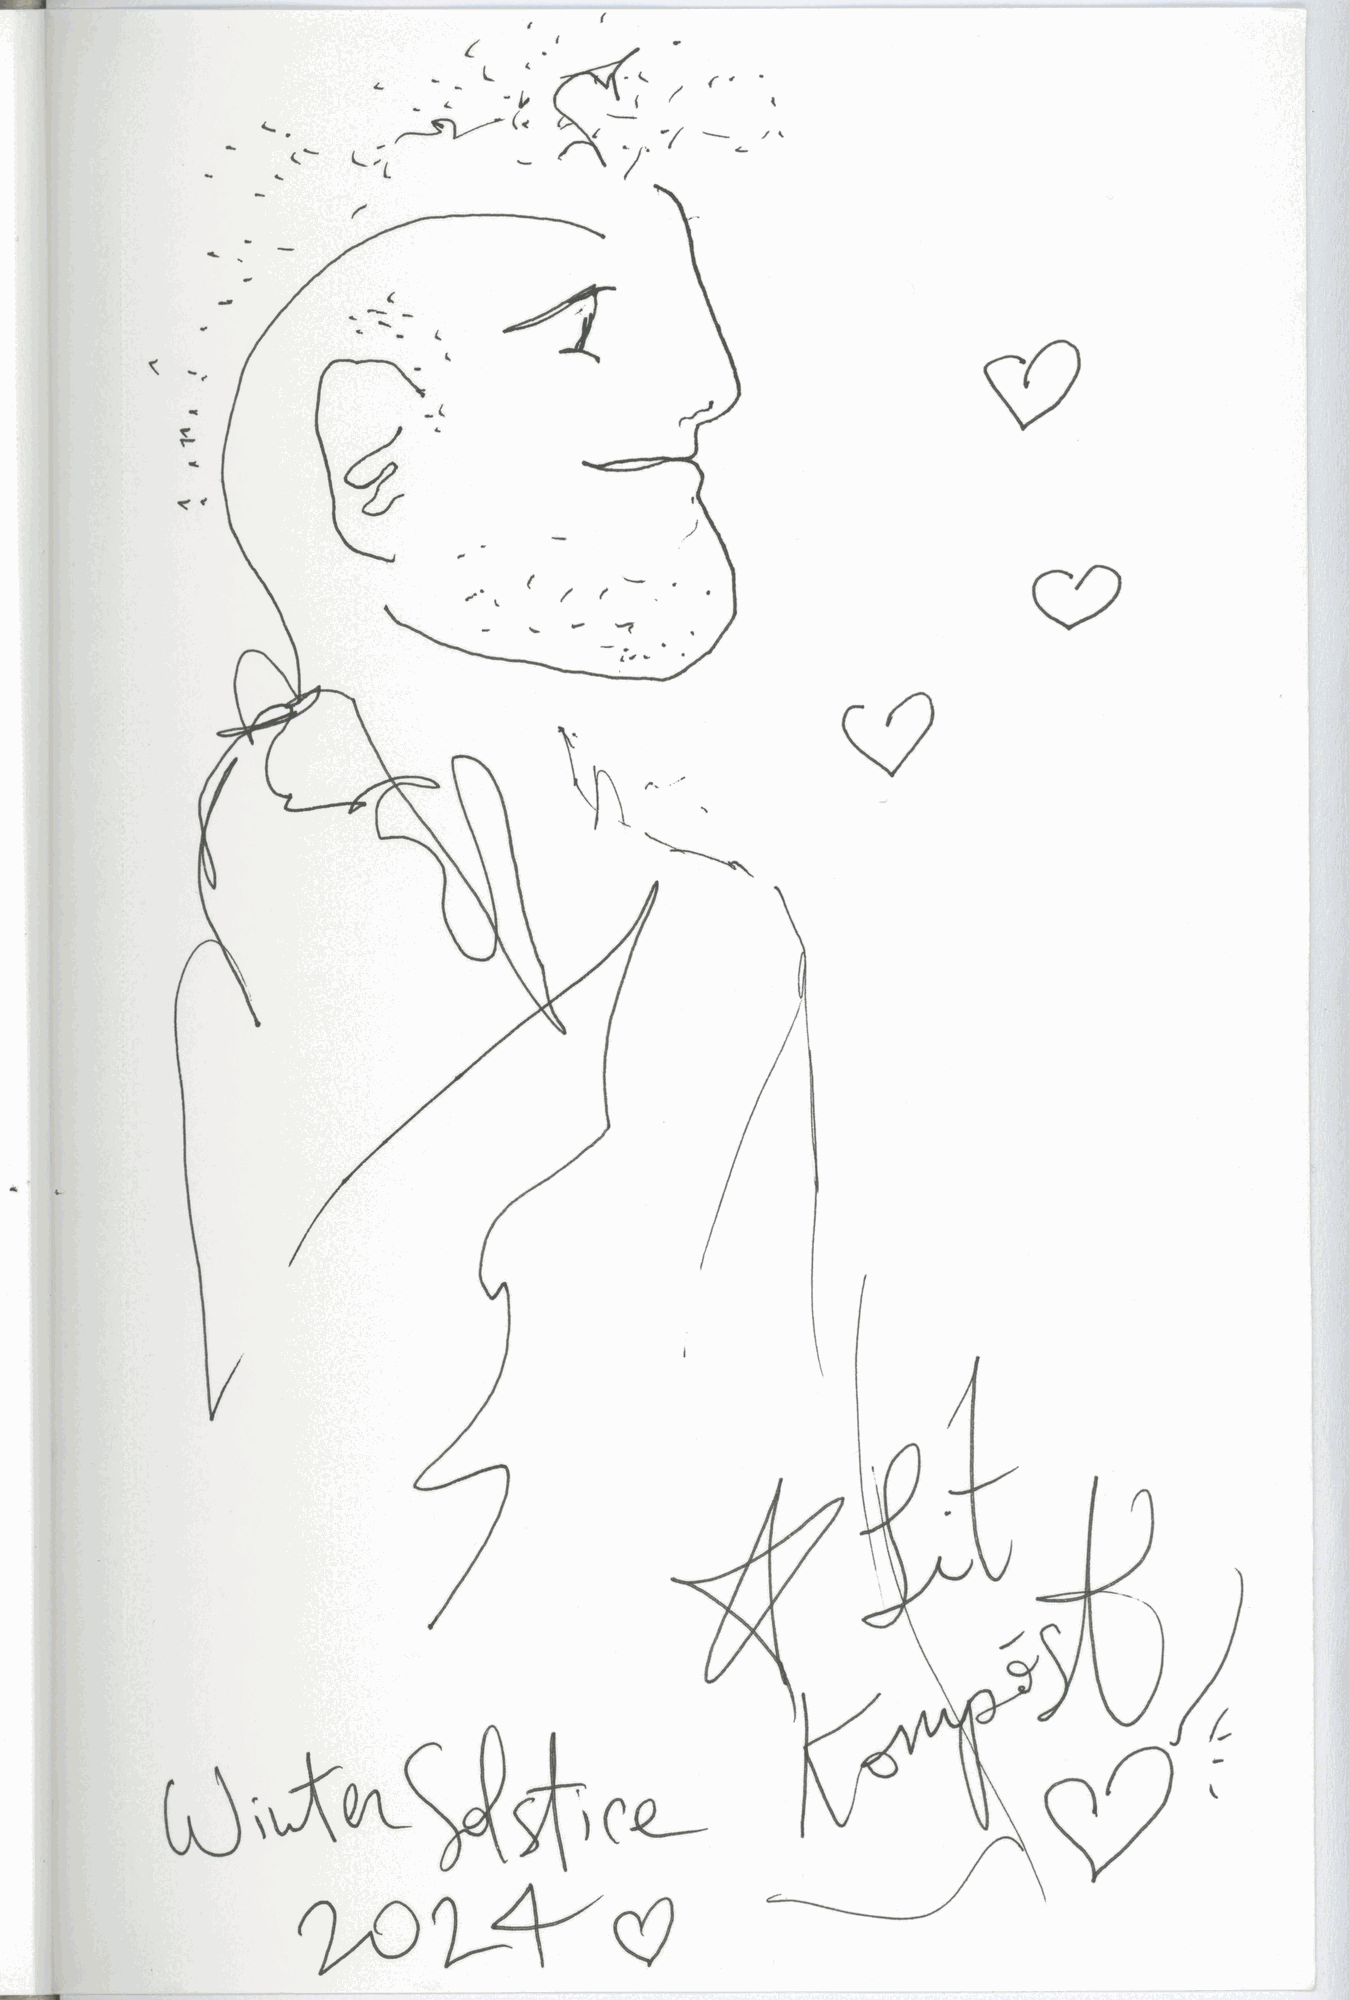 Lit
Kompóst
Winter Solstice
2024